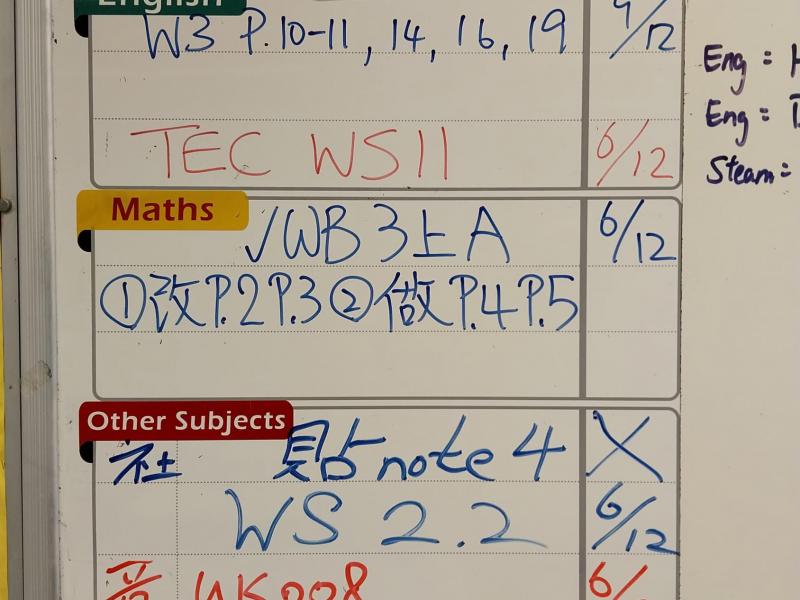 English
W3 P.10-11, 14, 16, 19 9/12
Eng =
Eng =
TEC WS11 6/12
Steam=
Maths
✓WB 3上A 6/12
①改P.2P.3②做P.4P.5
Other Subjects
社 貼note 4 X
WS 2.2 6/12
音 WK008 6/